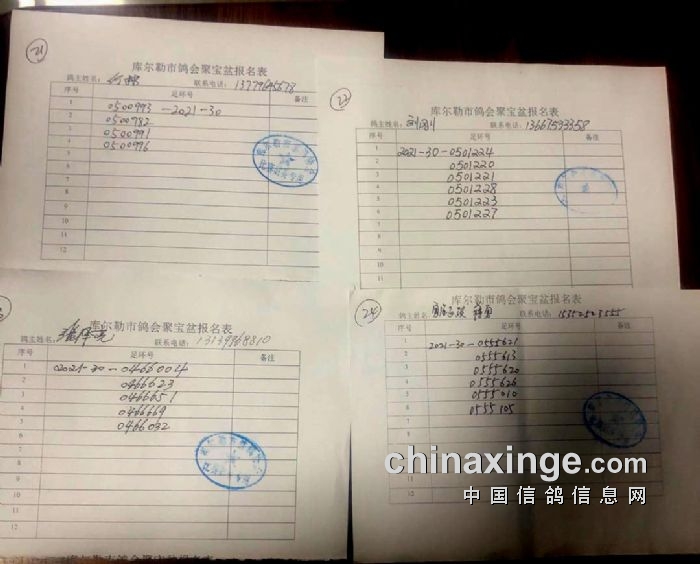 21
库尔勒市鸽会聚宝盆报名表
鸽主姓名: 联系电话: 13779645678
序号 足环号 备注
1 0500993 -2021-30
2 0500782
3 0500991
4 0500996
5
6
7
8
9
10
11
12
22
库尔勒市鸽会聚宝盆报名表
鸽主姓名: 联系电话: 13667593358
序号 足环号 备注
1 2021-30-0501224
2 0501220
3 0501221
4 0501228
5 0501223
6 0501227
7
8
9
10
11
库尔勒市鸽会聚宝盆报名表
鸽主姓名: 联系电话: 13139868810
序号 足环号 备注
1 2021-30-0466004
2 0466623
3 0466651
4 0466669
5 0466032
6
7
8
9
10
11
12
24
库尔勒市鸽会聚宝盆报名表
鸽主姓名: 联系电话: 15352503555
序号 足环号 备注
1 2021-30-0555621
2 0555613
3 0555620
4 0555626
5 0555010
6 0555105
7
8
9
10
11
12
chinaxinge.com
中国信鸽信息网
库尔勒市鸽会聚宝盆报名表